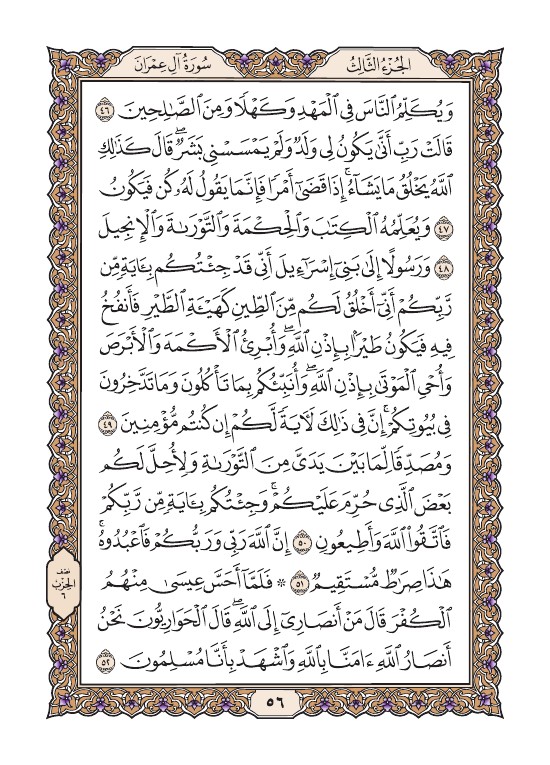 سُورَةُ آلِ عِمْرَانَ
الجُزْءُ الثَّالِثُ
وَيُكَلِّمُ ٱلنَّاسَ فِي ٱلْمَهْدِ وَكَهْلًا وَمِنَ ٱلصَّٰلِحِينَ ٤٦
قَالَتْ رَبِّ أَنَّىٰ يَكُونُ لِي وَلَدٌ وَلَمْ يَمْسَسْنِي بَشَرٌۖ قَالَ كَذَٰلِكِ
ٱللَّهُ يَخْلُقُ مَا يَشَآءُۚ إِذَا قَضَىٰٓ أَمْرًا فَإِنَّمَا يَقُولُ لَهُۥ كُن فَيَكُونُ
٤٧ وَيُعَلِّمُهُ ٱلْكِتَٰبَ وَٱلْحِكْمَةَ وَٱلتَّوْرَىٰةَ وَٱلْإِنجِيلَ
٤٨ وَرَسُولًا إِلَىٰ بَنِيٓ إِسْرَٰٓءِيلَ أَنِّي قَدْ جِئْتُكُم بِـَٔايَةٍ مِّن
رَّبِّكُمْ أَنِّيٓ أَخْلُقُ لَكُم مِّنَ ٱلطِّينِ كَهَيْـَٔةِ ٱلطَّيْرِ فَأَنفُخُ
فِيهِ فَيَكُونُ طَيْرًۢا بِإِذْنِ ٱللَّهِۖ وَأُبْرِئُ ٱلْأَكْمَهَ وَٱلْأَبْرَصَ
وَأُحْيِ ٱلْمَوْتَىٰ بِإِذْنِ ٱللَّهِۖ وَأُنَبِّئُكُم بِمَا تَأْكُلُونَ وَمَا تَدَّخِرُونَ
فِي بُيُوتِكُمْۚ إِنَّ فِي ذَٰلِكَ لَأٓيَةً لَّكُمْ إِن كُنتُم مُّؤْمِنِينَ ٤٩
وَمُصَدِّقًا لِّمَا بَيْنَ يَدَيَّ مِنَ ٱلتَّوْرَىٰةِ وَلِأُحِلَّ لَكُم
بَعْضَ ٱلَّذِي حُرِّمَ عَلَيْكُمْۚ وَجِئْتُكُم بِـَٔايَةٍ مِّن رَّبِّكُمْ
فَٱتَّقُوا۟ ٱللَّهَ وَأَطِيعُونِ ٥٠ إِنَّ ٱللَّهَ رَبِّي وَرَبُّكُمْ فَٱعْبُدُوهُۚ
هَٰذَا صِرَٰطٌ مُّسْتَقِيمٌ ٥١ ۞ فَلَمَّآ أَحَسَّ عِيسَىٰ مِنْهُمُ
ٱلْكُفْرَ قَالَ مَنْ أَنصَارِيٓ إِلَى ٱللَّهِۖ قَالَ ٱلْحَوَارِيُّونَ نَحْنُ
أَنصَارُ ٱللَّهِ ءَامَنَّا بِٱللَّهِ وَٱشْهَدْ بِأَنَّا مُسْلِمُونَ ٥٢
نصف
الحزب
٦
٥٦